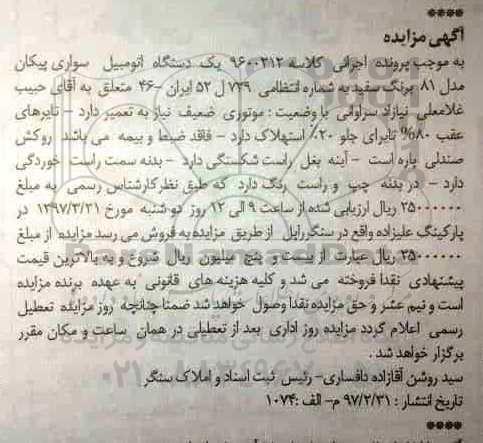 ****
آگهی مزایده
به موجب پرونده اجرائی کلاسه ۹۶۰۰۳۱۲ یک دستگاه اتومبیل سواری پیکان
مدل ۸۱ برنگ سفید به شماره انتظامی ۷۴۹ ل ۵۲ ایران -۴۶ متعلق به آقای حبیب
غلامعلی نیازاد سراوانی با وضعیت : موتوری ضعیف نیاز به تعمیر دارد - تایرهای
عقب ۸۰% تایرای جلو ۲۰% استهلاک دارد - فاقد ضبط و بیمه می باشد روکش
صندلی پاره است - آینه بغل راست شکستگی دارد - بدنه سمت راست خوردگی
دارد - در بدنه چپ و راست رنگ دارد که طبق نظر کارشناس رسمی به مبلغ
۲۵۰۰۰۰۰۰ ریال ارزیابی شده از ساعت ۹ الی ۱۲ روز دوشنبه مورخ ۱۳۹۷/۳/۲۱ در
پارکینگ علیزاده واقع در سنگر رابل از طریق مزایده به فروش می رسد مزایده از مبلغ
۲۵۰۰۰۰۰۰ ریال عبارت از بیست و پنج میلیون ریال شروع و به بالاترین قیمت
پیشنهادی نقدا فروخته می شد و کلیه هزینه های قانونی به عهده برنده مزایده
است و نیم عشر و حق مزایده نقدا وصول خواهد شد ضمنا چنانچه روز مزایده تعطیل
رسمی اعلام گردد مزایده روز اداری بعد از تعطیلی در همان ساعت و مکان مقرر
برگزار خواهد شد .
سید روشن آقازاده دافساری- رئیس ثبت اسناد و املاک سنگر
تاریخ انتشار : ۹۷/۲/۳۱ م- الف :۱۰۷۴
****